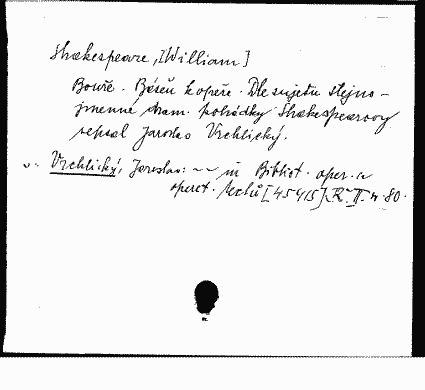 Shakespeare, [William]
Bouře. Báseň k opeře. Dle sujetu stejno-
jmenné dram. pohádky Shakespearovy
sepsal Jaroslav Vrchlický.
v. Vrchlický, Jaroslav: ~~ in Bibliot. oper. a
operet. textů [45415] R. II. n. 80.